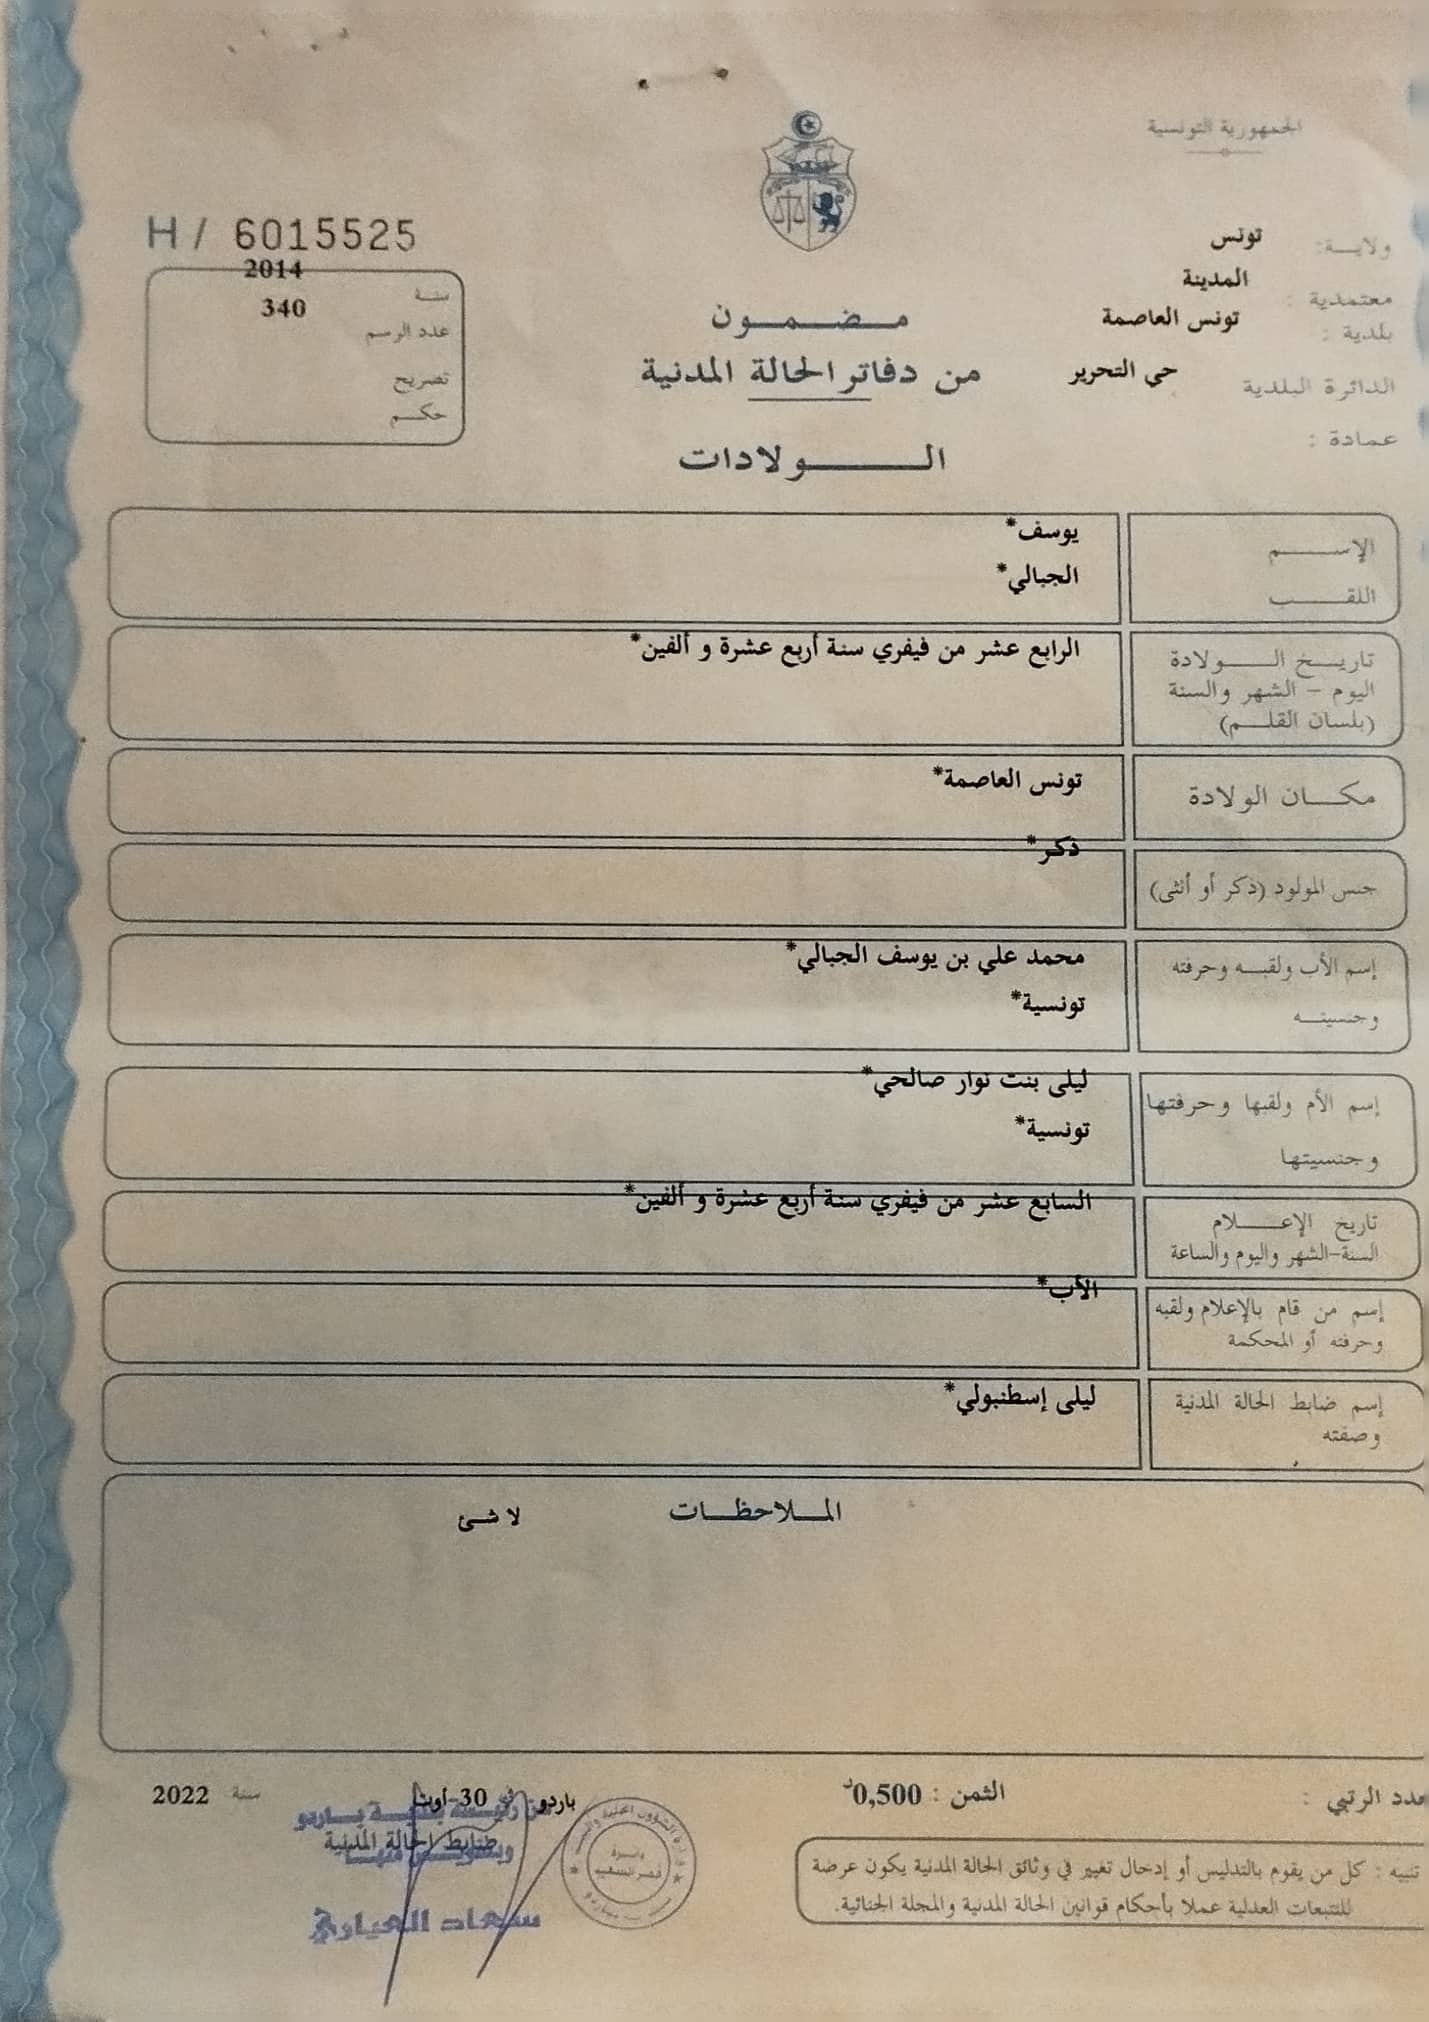 الجمهورية التونسية
ولاية: تونس
معتمدية : المدينة
بلدية : تونس العاصمة
الدائرة البلدية حي التحرير
عمادة :
H / 6015525
سنة 2014
عدد الرسم 340
تصريح
حكم
مضمون
من دفاتر الحالة المدنية
الولادات
الإسم يوسف*
اللقب الجبالي*
تاريخ الولادة الرابع عشر من فيفري سنة أربع عشرة و ألفين*
اليوم – الشهر والسنة
(بلسان القلم)
مكان الولادة تونس العاصمة*
جنس المولود (ذكر أو أنثى) ذكر*
إسم الأب ولقبه وحرفته محمد علي بن يوسف الجبالي*
وجنسيته تونسية*
إسم الأم ولقبها وحرفتها ليلى بنت نوار صالحي*
وجنسيتها تونسية*
تاريخ الإعلام السابع عشر من فيفري سنة أربع عشرة و ألفين*
السنة-الشهر واليوم والساعة
إسم من قام بالإعلام ولقبه الأب*
وحرفته أو المحكمة
إسم ضابط الحالة المدنية ليلى إسطنبولي*
وصفته
الملاحظات لا شئ
عدد الرتبي :
الثمن : 0,500د
باردو في 30-أوت سنة 2022
ضابط الحالة المدنية
عن رئيسة بلدية باردو
وبتفويض منها
سعاد العياري
دائرة
قصر السعيد
تنبيه : كل من يقوم بالتدليس أو إدخال تغيير في وثائق الحالة المدنية يكون عرضة
للتتبعات العدلية عملا بأحكام قوانين الحالة المدنية والمجلة الجنائية.